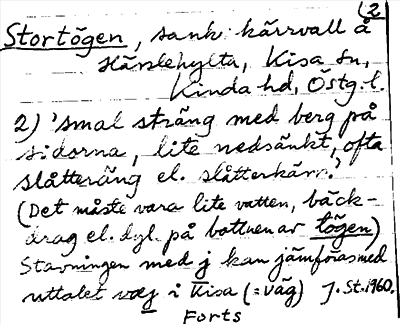 (2
Stortögen, sank kärrvall å
Härslehylta, Kisa sn,
Kinda hd, Östg. l.
2) 'smal sträng med berg på
sidorna, lite nedsänkt, ofta
slåtteräng el. slåtterkärr.'
(Det måste vara lite vatten, bäck-
drag el. dyl. på bottnen av tögen)
Stavningen med j kan jämföras med
uttalet væj i Kisa (= väg) J. St. 1960.
Forts